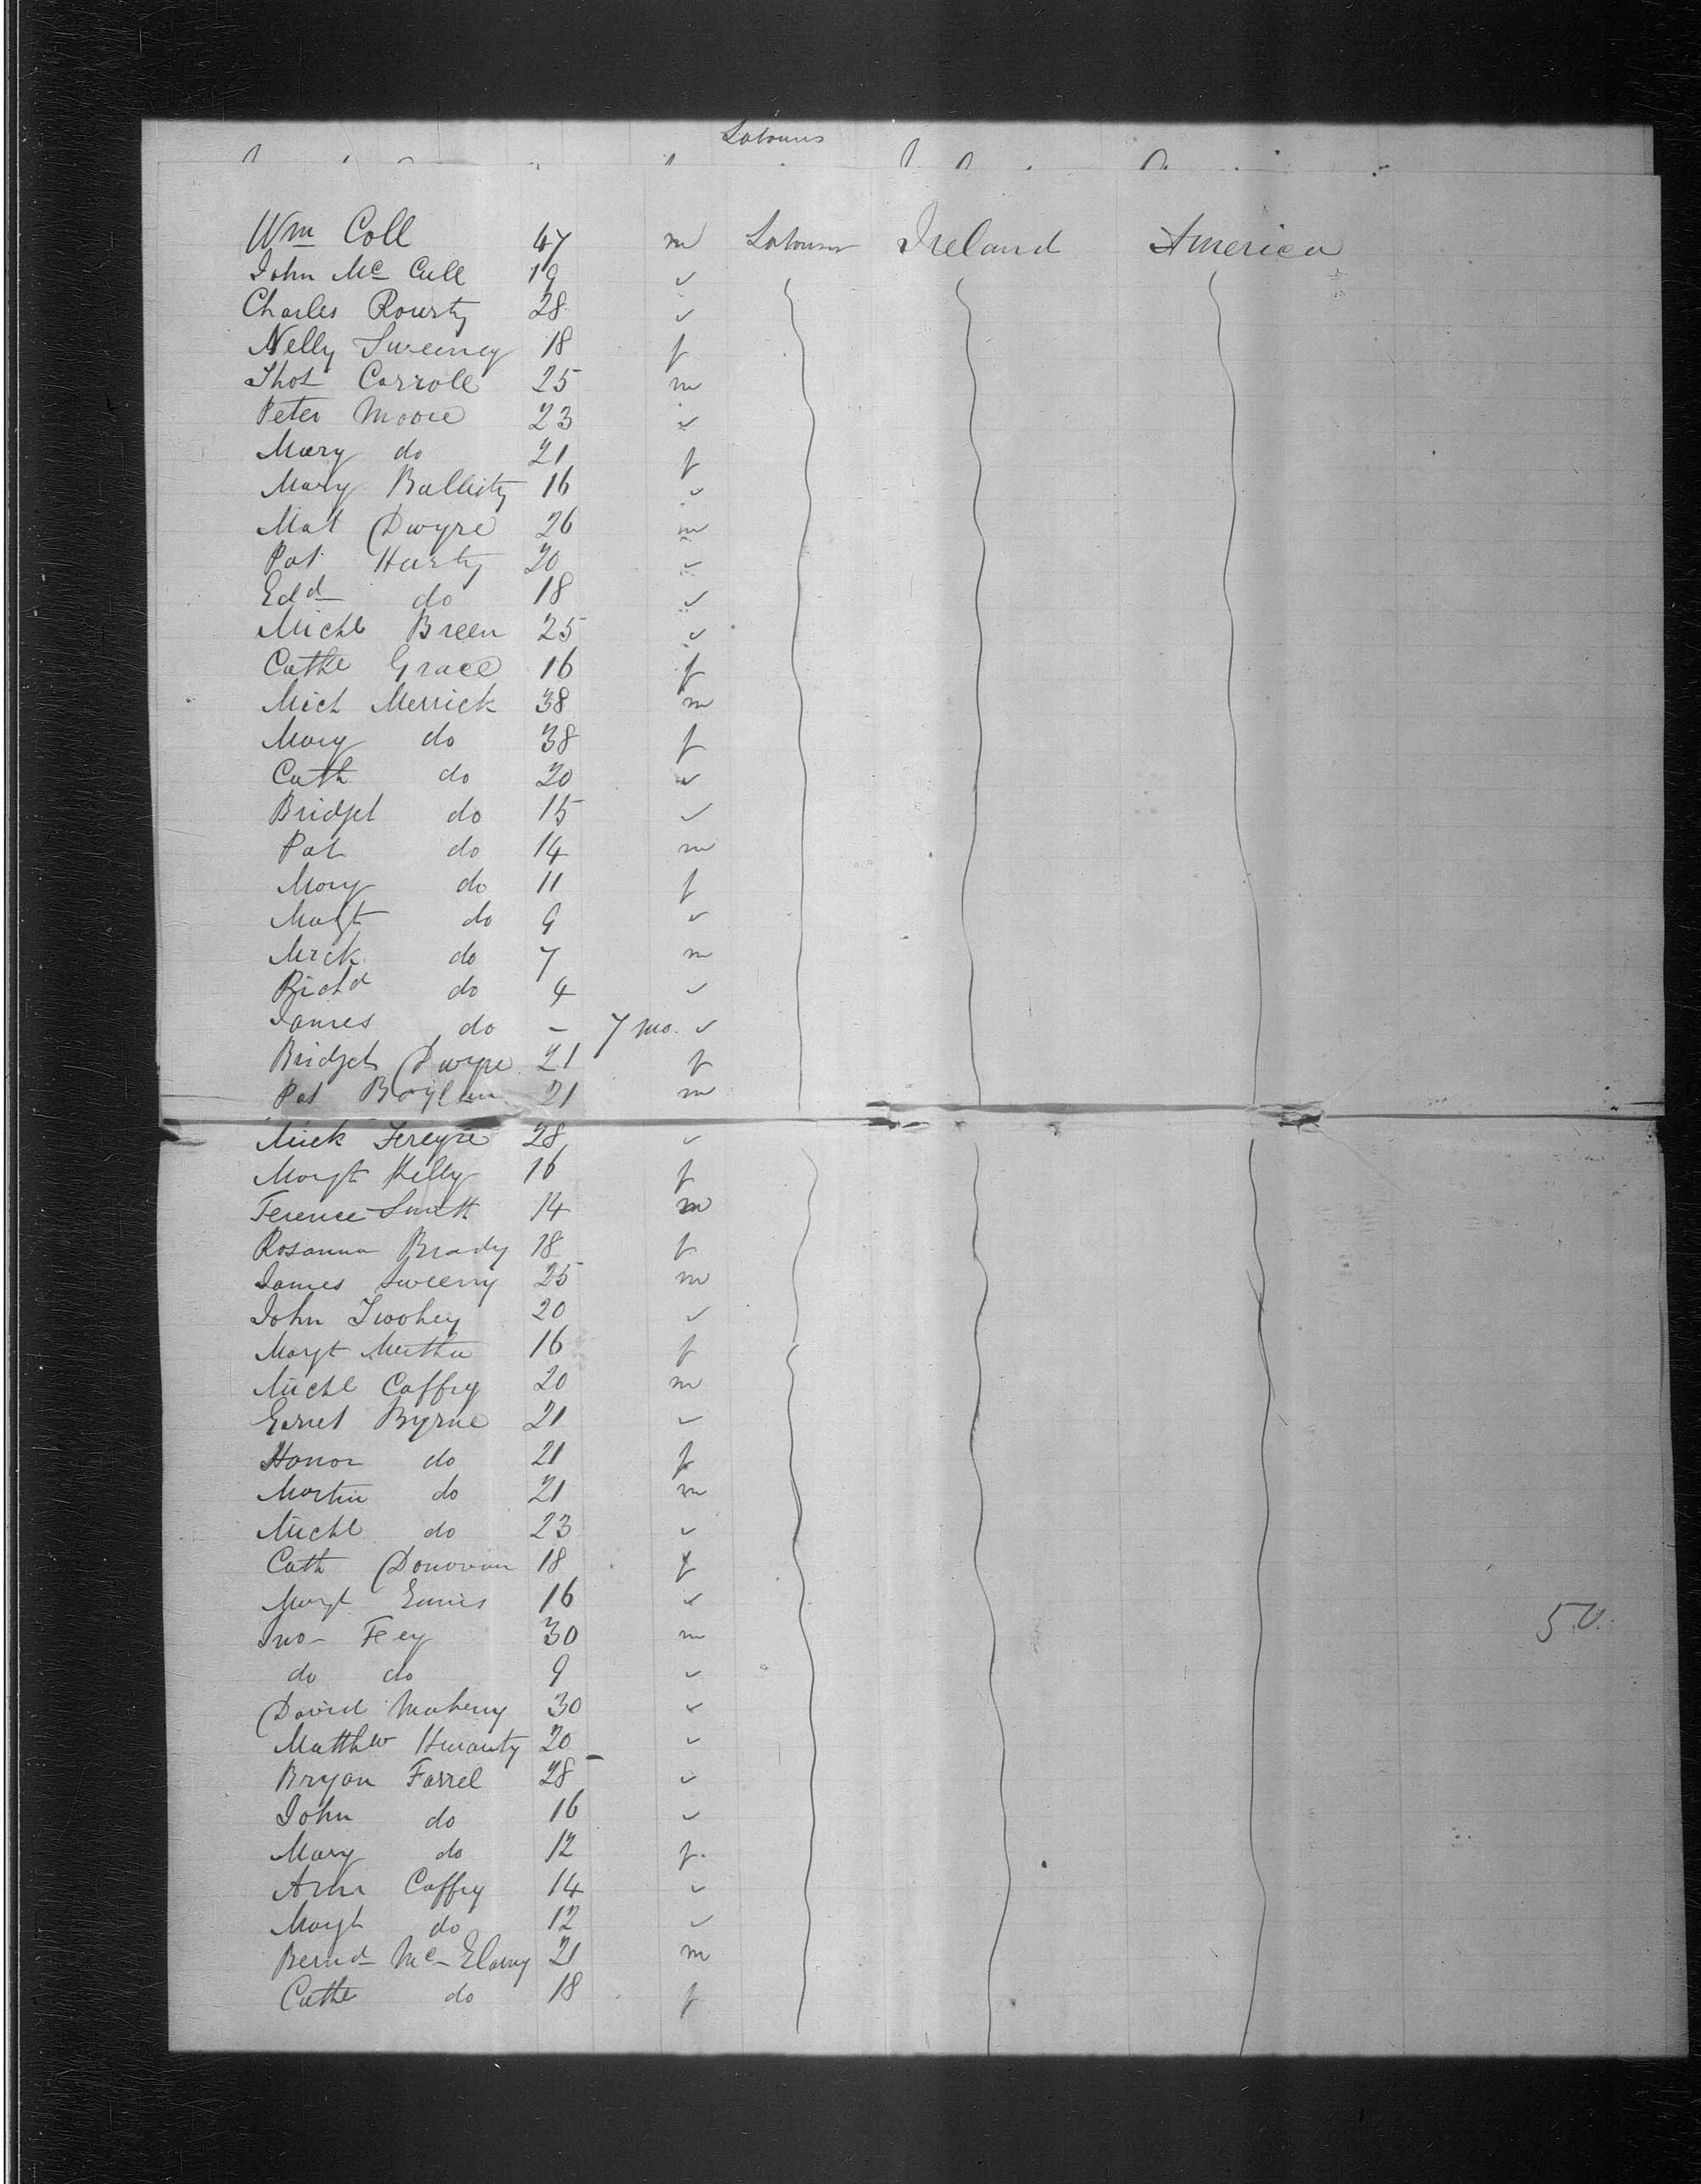 Labourers
Wm Coll 47 m Labourer Ireland America
John Mc Cull 19 ✓
Charles Rourty 28 ✓
Nelly Sweeney 18 f
Thos Carroll 25 m
Peter Moore 23 ✓
Mary do 21 f
Mary 16 ✓
Mat Dwyre 26 m
Pat Harty 20 ✓
Edd do 18 ✓
Michl Breen 25 ✓
Cathe Grace 16 f
Mich Merrick 38 m
Mary do 38 f
Cath do 20 ✓
Bridget do 15 ✓
Pat do 14 m
Mary do 11 f
Margt do 9 ✓
Mick do 7 m
Richd do 4 ✓
James do - 7 mo. ✓
Bridget Dwyre 21 f
Pat Boylan 21 m
Mick 28 ✓
Margt Kelly 16 f
Terence Smith 14 m
Rosanna Brady 18 f
James Sweeny 25 m
John Twohey 20 ✓
Margt 16 f
Michl Caffry 20 m
Byrne 21 ✓
Honor do 21 f
Martin do 21 m
Michl do 23 ✓
Cath Donovan 18 f
Margt Ennis 16 ✓
Jno- Fey 30 m 50.
do do 9 ✓
David Maheny 30 ✓
Matthw 20 ✓
Bryan Farrel 28 ✓
John do 16 ✓
Mary do 12 f.
Ann Caffry 14 ✓
Margt do 12 ✓
Bernd Mc 21 m
Cathe do 18 f